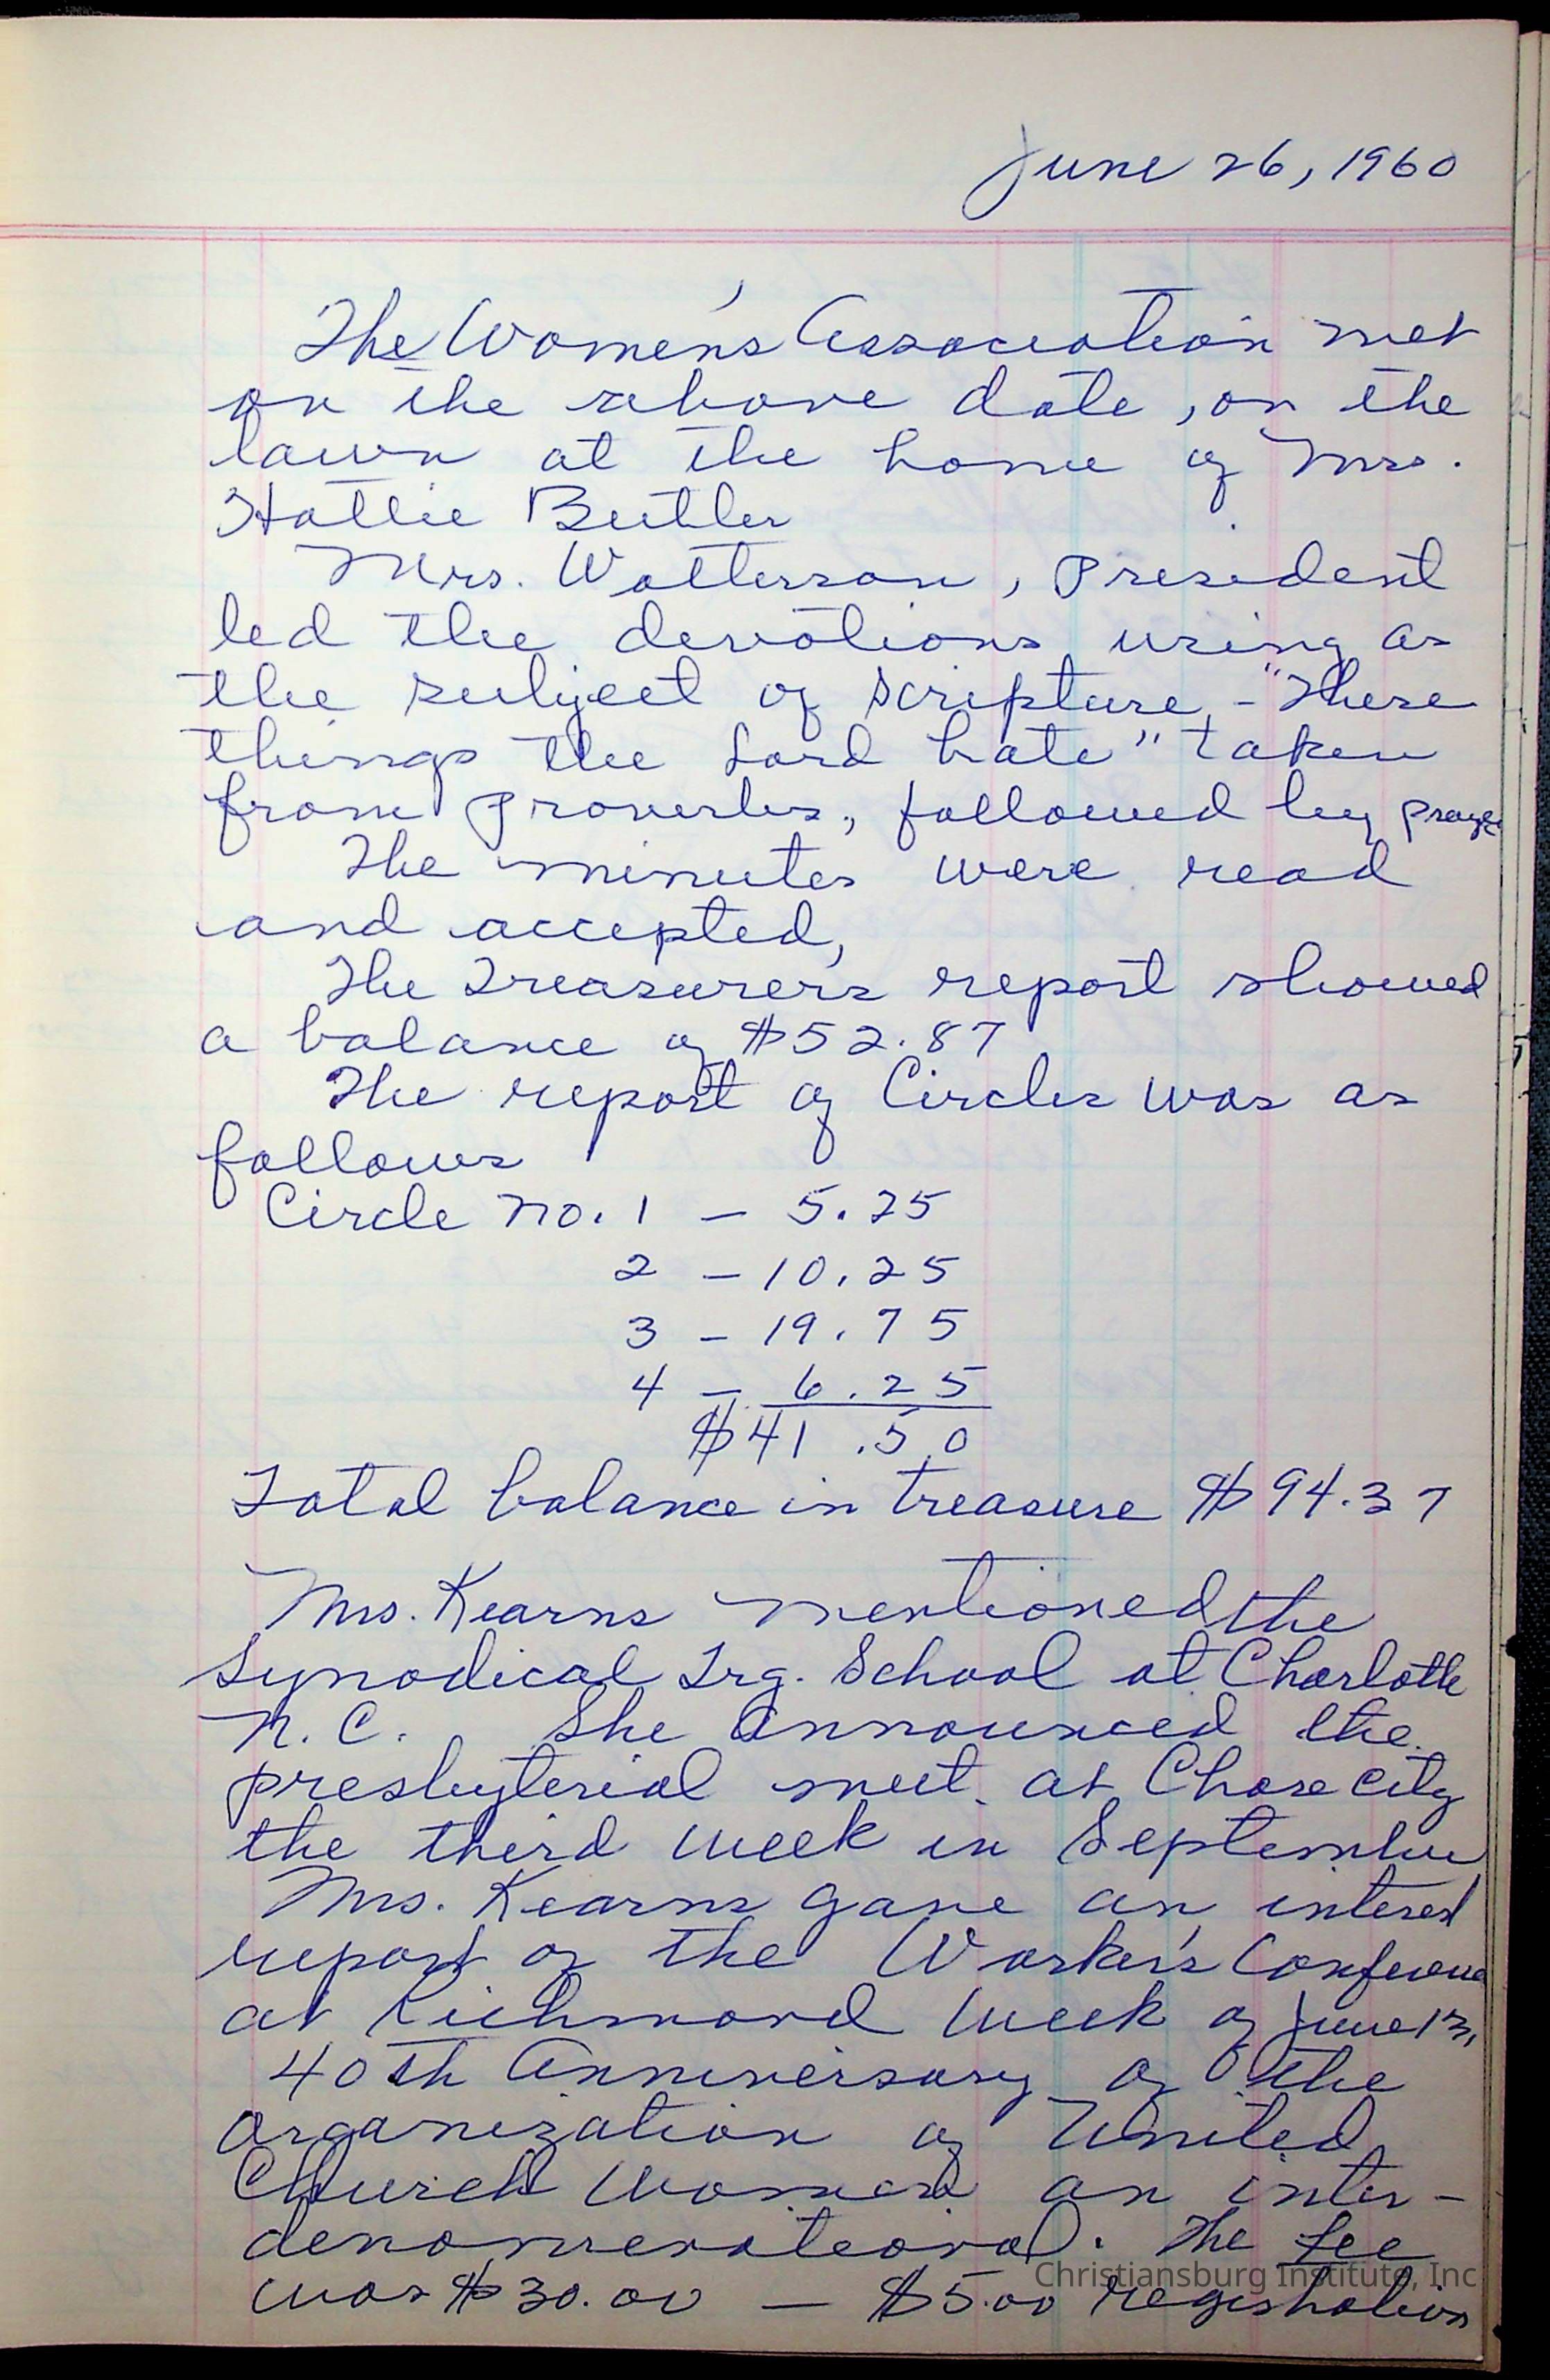 June 26, 1960
The Women's Association met
on the above date, on the
lawn at the home of Mrs.
Hattie Butler
Mrs. Watterson, President
led the devotions using as
the subject of scripture, - "These
things the Lord hate" taken
from Proverbs, followed by prayer
The minutes were read
and accepted,
The Treasurer's report showed
a balance of $52.87
The report of Circles was as
follows
Circle No. 1 — 5.25
2 — 10.25
3 — 19.75
4 — 6.25
$41.50
Total balance in treasure $94.37
Mrs. Kearns mentioned the
Synodical Trg. School at Charlotte
N.C. She announced the
presbyterial meet. at Chase City
the third week in September
Mrs. Kearns gave an interest
report of the Worker's Conference
at Richmond week of June 13,
40th Anniversary of the
organization of United
Church Women an inter-
denominational. The fee
was $30.00 — $5.00 registration
Christiansburg Institute, Inc